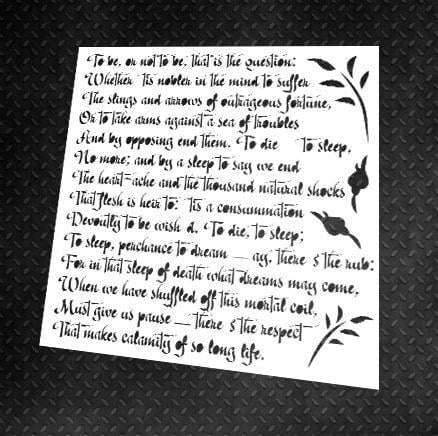 To be, or not to be, that is the question:
Whether 'tis nobler in the mind to suffer
The slings and arrows of outrageous fortune,
Or to take arms against a sea of troubles
And by opposing end them. To die to sleep,
No more; and by a sleep to say we end
The heart-ache and the thousand natural shocks
That flesh is heir to: 'tis a consummation
Devoutly to be wish d. To die, to sleep;
To sleep, perchance to dream — ay, there s the rub:
For in that sleep of death what dreams may come,
When we have shuffled off this mortal coil,
Must give us pause — there s the respect
That makes calamity of so long life.